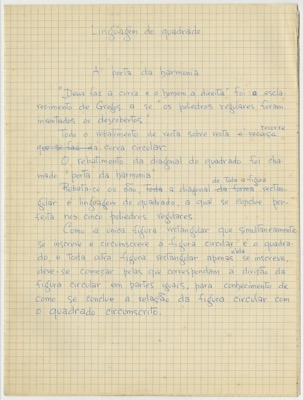 Linguagem do quadrado
A porta da harmonia
"Deus faz a curva e o homem a direita" foi o escla-
recimento de Gregos a se "os poliedros regulares foram
inventados ou descobertos".
Todo o rebatimento de recta sobre recta e recorre
que se faz da curva circular.
O rebatimento da diagonal do quadrado foi cha-
mado "porta da harmonia".
de toda a figura
Rebata-se ou não toda a diagonal da forma rectan-
gular é linguagem do quadrado, a qual se
nos cinco poliedros regulares.
Como a única figura rectangular que simultaneamente
se inscreve e circunscreve à figura circular é o quadra-
do, e toda outra figura rectangular apenas se inscreve,
deve-se começar pelas que correspondam à divisão da
figura circular em partes iguais, para conhecimento de
como se conclue a relação da figura circular com
o quadrado circunscrito.